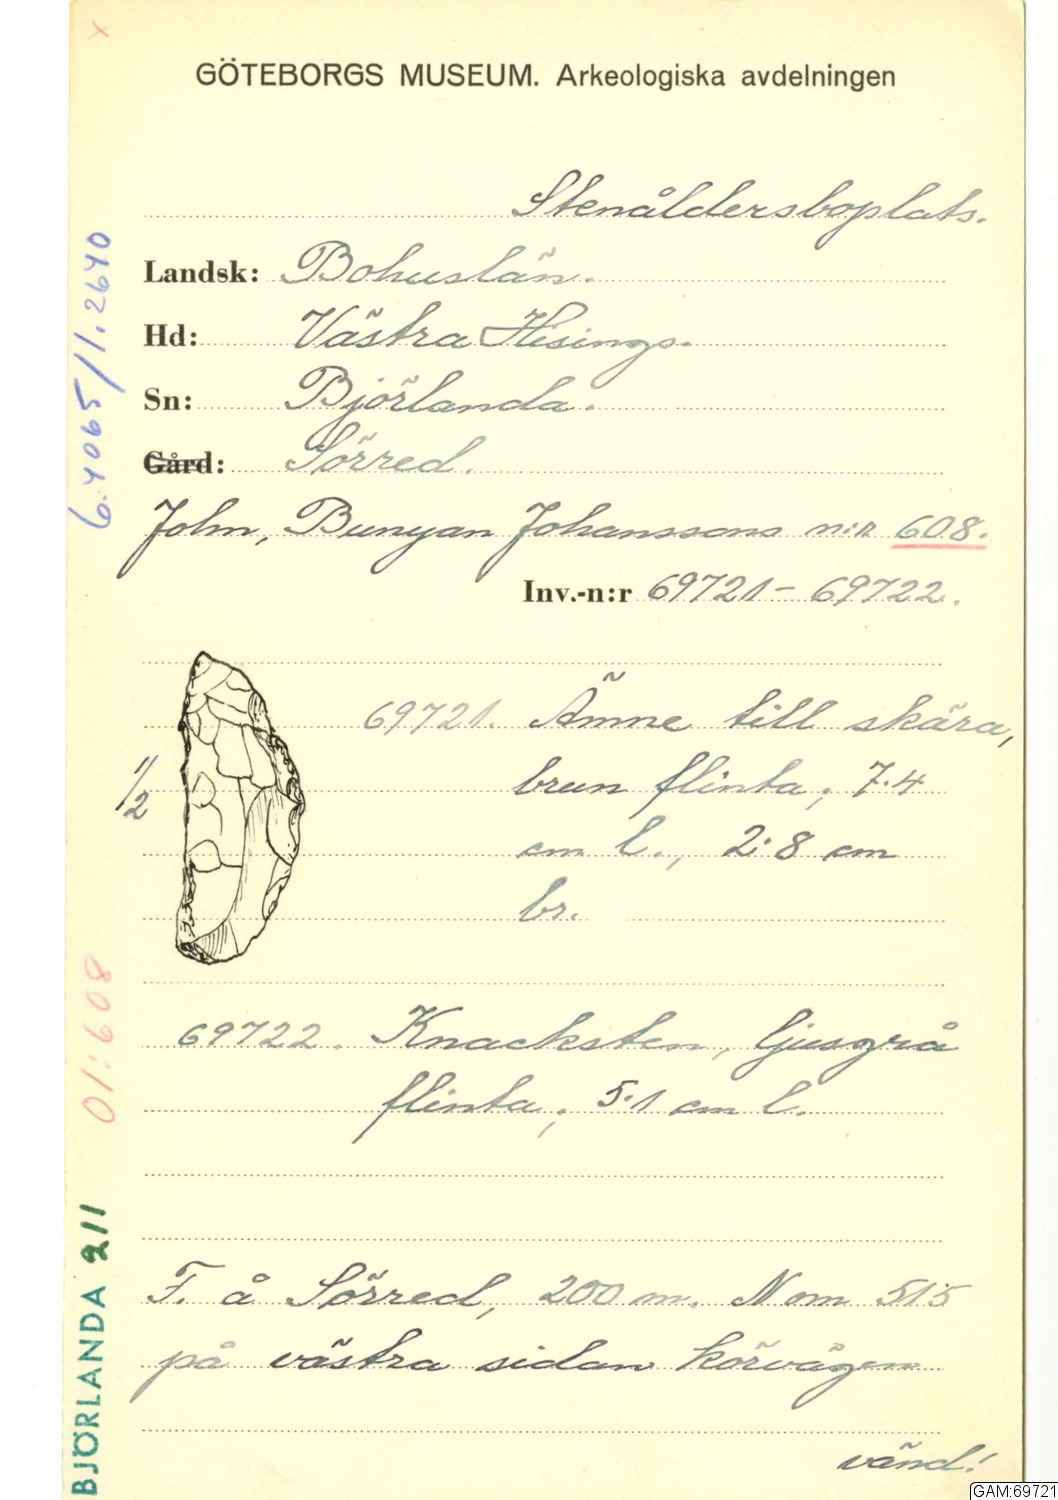 x
GÖTEBORGS MUSEUM. Arkeologiska avdelningen
Stenåldersboplats.
Landsk: Bohuslän.
Hd: Västra Hisings.
Sn: Björlanda.
Gård: Sörred.
John, Bunyan Johanssons n:r 608.
Inv.-n:r 69721 - 69722.
69721. Ämne till skära,
brun flinta; 7.4
cm l., 2:8 cm
br.
1/2
69722. Knacksten, ljusgrå
flinta; 5.1 cm l.
F. å Sörred, 200 m. N om 515
på västra sidan körvägen
vänd!
6.4065/1.2640
01:608
BJÖRLANDA 211
GAM:69721